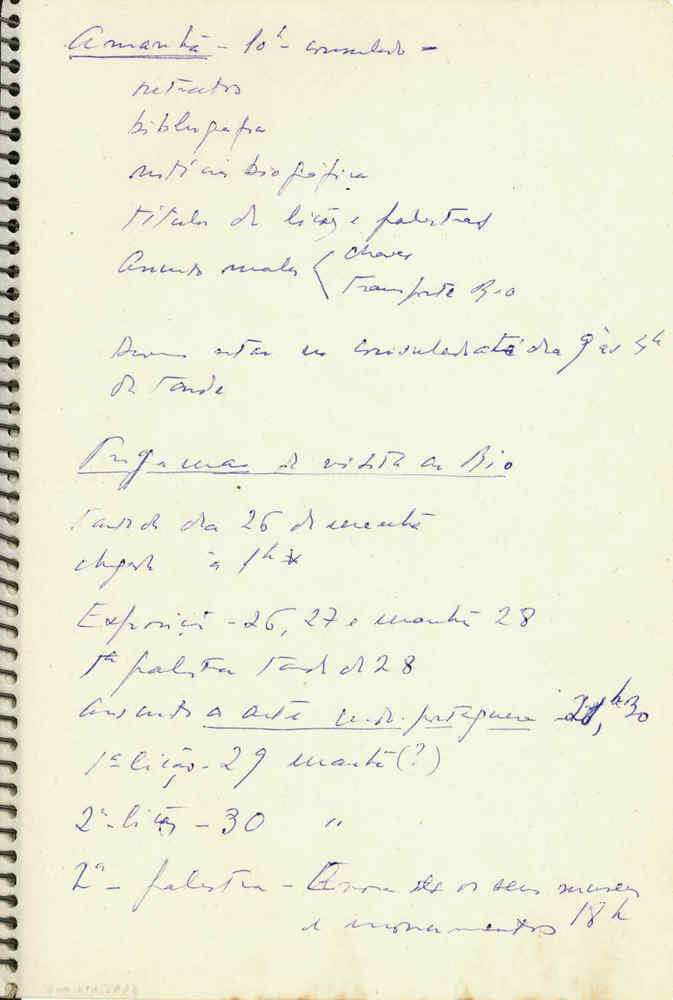 Amanhã - 10h - consulado -
retratos
bibliografia
notícia biográfica
títulos de lições e palestras
Assunto malas { chaves
transporte Rio
Devem estar no consulado até dia 9 às 5h
da tarde
Programa de visita ao Rio
dia 26 de manhã
chegada à 1h
Exposição - 26, 27 e manhã 28
1ª palestra tarde de 28
assunto a arte portuguesa - 21,h30
1ª lição - 29 manhã (?)
2ª lição - 30 "
2ª - palestra - os seus museus
e monumentos 18h